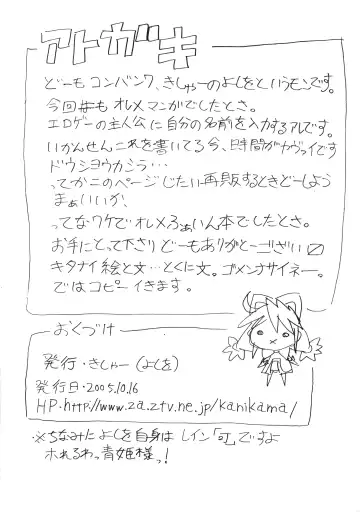 アトガキ
どーもコンバンワ、きしゃーのよしをというモンです。
今回#も オレメ マンガでしたとさ。
エロゲーの主人公に自分の名前を入力するアレです。
いかんせんこれを書いてる今、時間がヤヴァイです
ドウシヨウカシラ…
ってかこのページじたい再販するときどーしよう
まぁいいか、
ってなワケでオレメろぁいん本でしたとさ。
お手にとって下さり どーもありがとーござい〼
キタナイ絵と文…とくに文。ゴメンナサイネー。
ではコピー行きます。
おくづけ
発行・きしゃー(よしを)
発行日・2005.10.16
HP・http://www.za.ztv.ne.jp/kanikama/
※ちなみに よしを自身は レイン「可」ですよ
ホれるわっ青姫様っ!